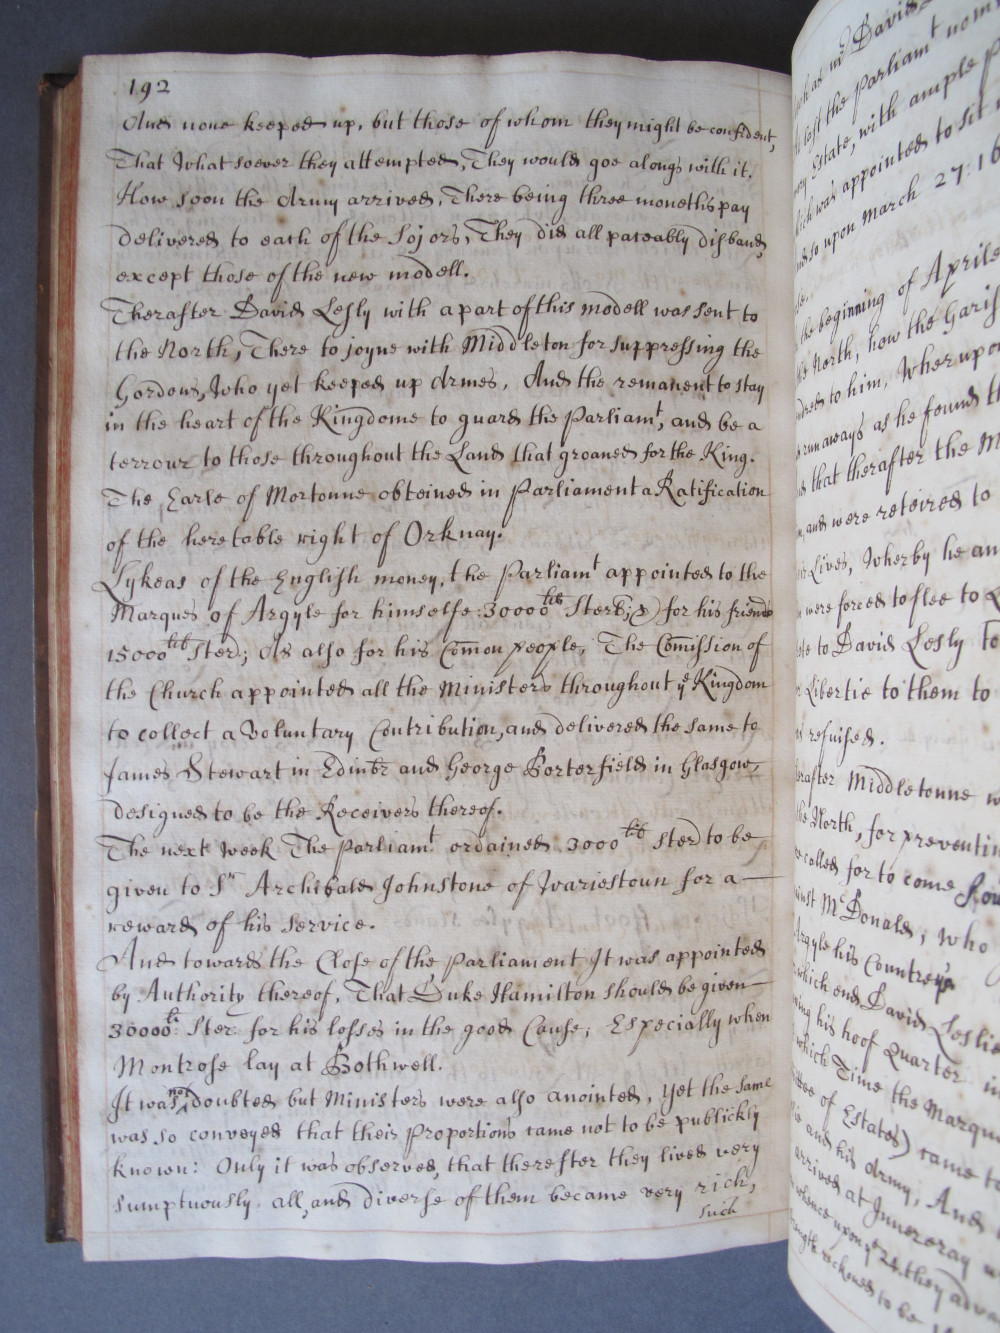 192
And none keeped up, but those of whom they might be confident,
That Whatsoever they attempted, They would goe alongs with it.
How soon the Army arrived, There being three moneths pay
delivered to each of the Sojors, They did all peaceably disband,
except those of the new modell.
Therafter David Lesly with a part of this modell was sent to
the North, There to joyne with Middleton for suppressing the
Gordons, Who yet keeped up Armes, And the remanent to stay
in the heart of the Kingdome to guard the Parliamt, and be a
terrour to those throughout the Land that groaned for the King.
The Earle of Mortonne obteined in Parliament a Ratification
of the heretable right of Orknay.
Lykeas of the English money, the Parliamt appointed to the
Marques of Argyle for himselfe 30000 lib Sterl; & for his friends
15000 lib Ster; As also for his Comon people, The Comission of
the Church appointed all the Ministers throughout ye Kingdom
to collect a Voluntary Contribution, and delivered the same to
James Stewart in Edinbr and George Porterfield in Glasgow,
designed to be the Receivers thereof.
The next Week The Parliamt ordained 3000 lib Ster to be
given to Sr Archibald Johnstone of Wariestoun for a
reward of his service.
And towards the Close of the Parliament It was appointed
by Authority thereof, That Duke Hamilton should be given
30000 li: Ster: for his losses in the good Cause; Especially when
Montrose lay at Bothwell.
It was not doubted but Ministers were also anointed, Yet the same
was so conveyed that their Proportions came not to be publickly
known: Only it was observed, that therefter they lived very
sumptuously all, and diverse of them became very rich,
such
David
the last the Parliamt nom
Estate, with ample
was appointed to sit
upon March 27: 16
the beginning of Aprile
North, how the Garis
to him, Wherupon
runaways as he found th
that therafter the M
and were reteired to
Lives, Wherby he an
were forced to flee to
to David Lesly To
Libertie to them to
refuised.
Middletonne w
the North, for preventin
called for to come
McDonald, who
Argyle his Countreye
which end David Leslie
his hoof Quarter in
which Time the Marque
of Estates) came to
and his Army, And
arrived at Innereray
whence upon ye 24. they adva
reckoned to be